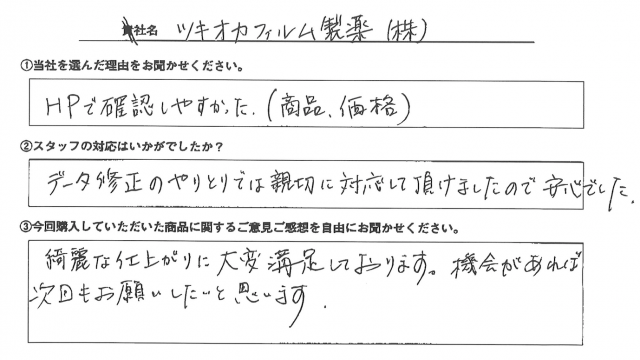 貴社名 ツキオカフィルム製薬(株)
①当社を選んだ理由をお聞かせください。
HPで確認しやすかった。(商品、価格)
②スタッフの対応はいかがでしたか?
データ修正のやりとりでは親切に対応して頂けましたので安心でした。
③今回購入していただいた商品に関するご意見ご感想を自由にお聞かせください。
綺麗な仕上がりに大変満足しております。機会があれば
次回もお願いしたいと思います.